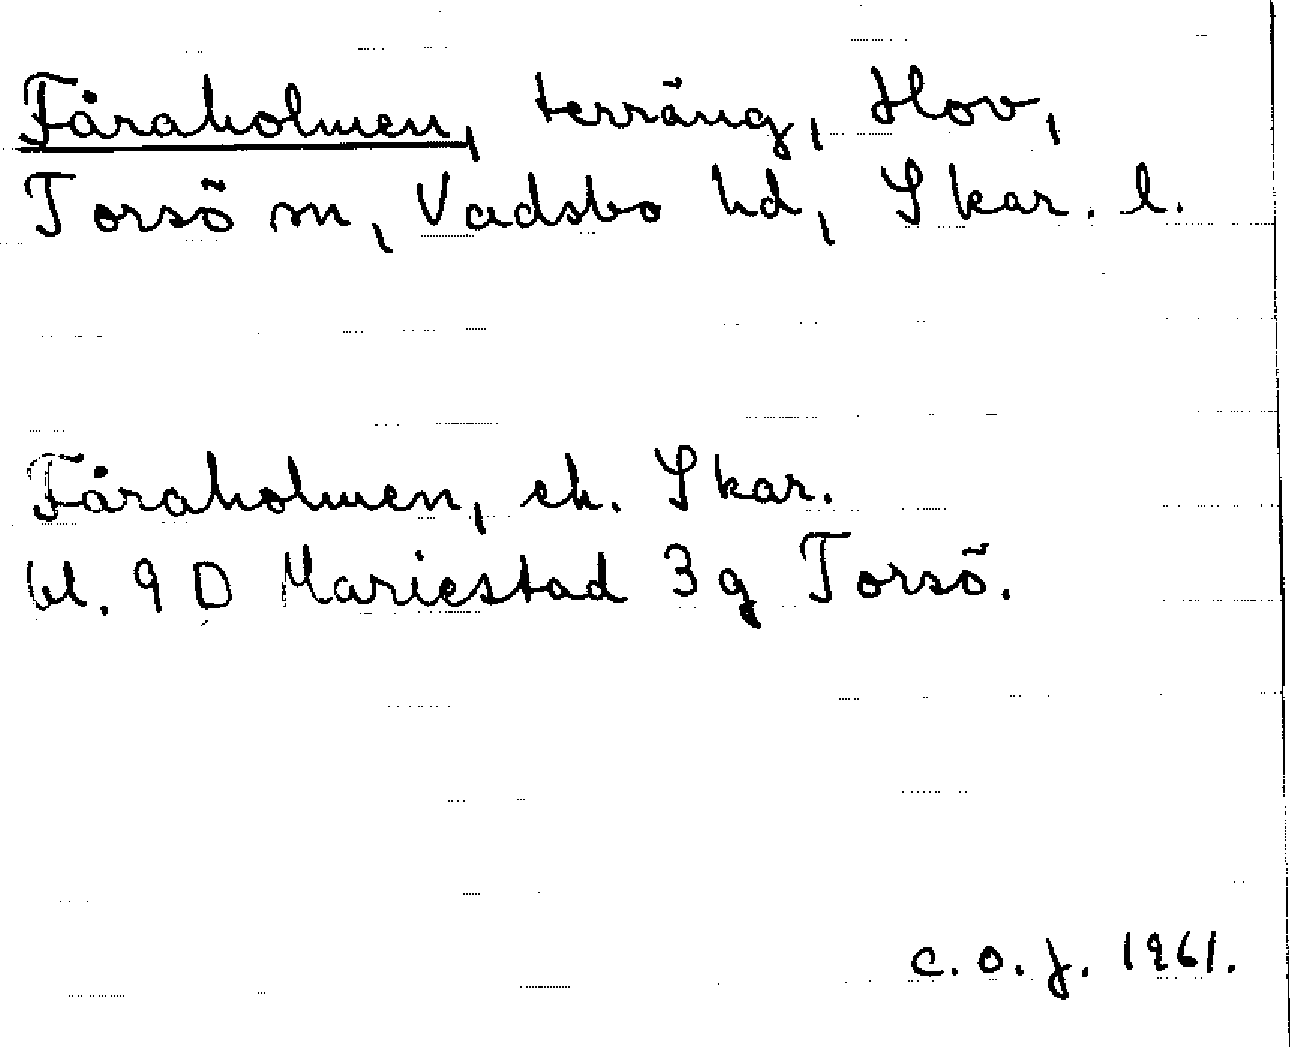 Fåraholmen, terräng, Hov,
Torsö sn, Vadsbo hd, Skar. l.
Fåraholmen, ek. Skar.
bl. 9 D Mariestad 3 g Torsö.
C. O. J. 1961.